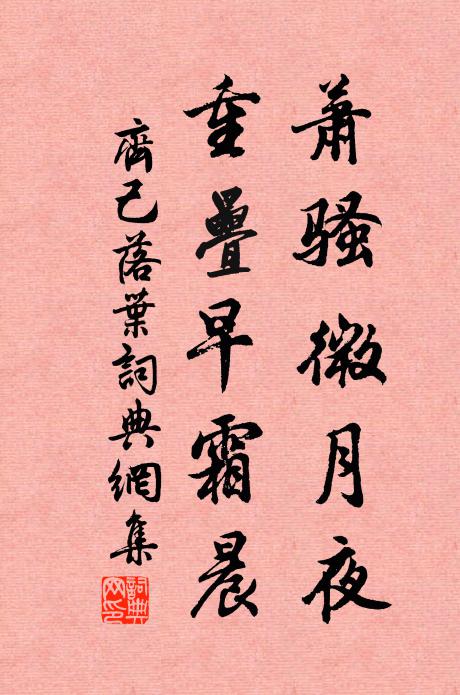 蕭騷微月夜
重疊早霜晨
齊己落葉詞典網集
詞典網印